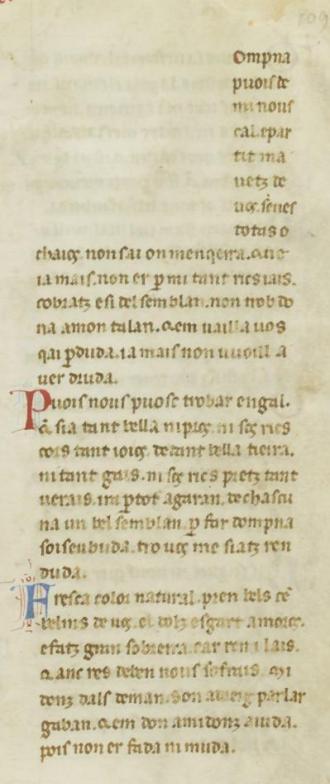 Ompna
puois de
mi nous
cal. epar
tit ma
uetz de
uos senes
totas o
chaios. non sai on menqeira. q̃ ne
ia mais. non er p̱ mi tant rics iais.
cobratz e si del semblan. non trob do
na a mon talan. q̃em uailla uos
qai p̱duda. ia mais non uuoill a
uer druda.
Puois nous puosc trobar engal.
q̃ sia tant bella ni pros. ni sos rics
cors tant ioios. de tant bella tieira.
ni tant gais. ni sos rics pretz tant
uerais. irai p̱tot agaran. de chascu
na un bel semblan. p̱ far dompna
soiseubuda. tro uos me siatz ren
duda.
Fresca color natural. pren bels cē
belins de uos. el dolz esgart amoros.
e fatz gran sobreira. car ren i lais.
q̃ anc res de ben nous sofrais. Mi
donz dals deman. son adreig parlar
gaban. q̃em don amidonz aiuda.
pois non er fada ni muda.